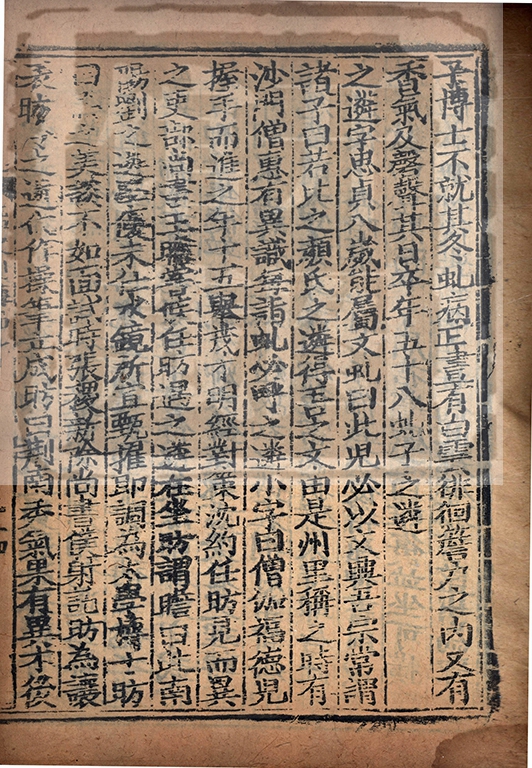 子博士不就其冬虬病正晝有白雲徘徊簷户之内又有
香氣及磬聲其日卒年五十八虬子之遴
之遴字思貞八歲能屬文虬曰此兒必以文興吾宗常謂
諸子曰若比之顔氏之遴得吾之文由是州里稱之時有
沙門僧惠有異識每詣虬必呼之遴小字曰僧伽福德兒
握手而進之年十五舉茂才明經對策沈約任昉見而異
之吏部尚書王瞻嘗候任昉遇之遴在坐昉謂瞻曰此南
陽劉之遴學優未仕水鏡所宜甄擢即調爲太學博士昉
曰爲之美談不如面試時張稷新除尚書僕射託昉爲讓
表昉令之遴代作操筆立成昉曰荆南秀氣果有異才後